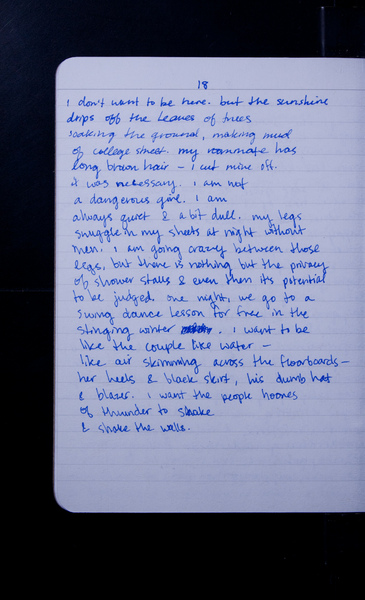 18
i don't want to be here. but the sunshine
drips off the leaves of trees
soaking the ground, making mud
of college street. my roommate has
long brown hair – i cut mine off.
it was necessary. i am not
a dangerous girl. i am
always quiet & a bit dull. my legs
snuggle in my sheets at night without
men. i am going crazy between those
legs, but there is nothing but the privacy
of shower stalls & even then its potential
to be judged. one night, we go to a
swing dance lesson for free in the
stinging winter . i want to be
like the couple like water –
like air skimming across the floorboards –
her heels & black skirt, his dumb hat
& blazer. i want the people
of thunder to shake
& shake the walls.